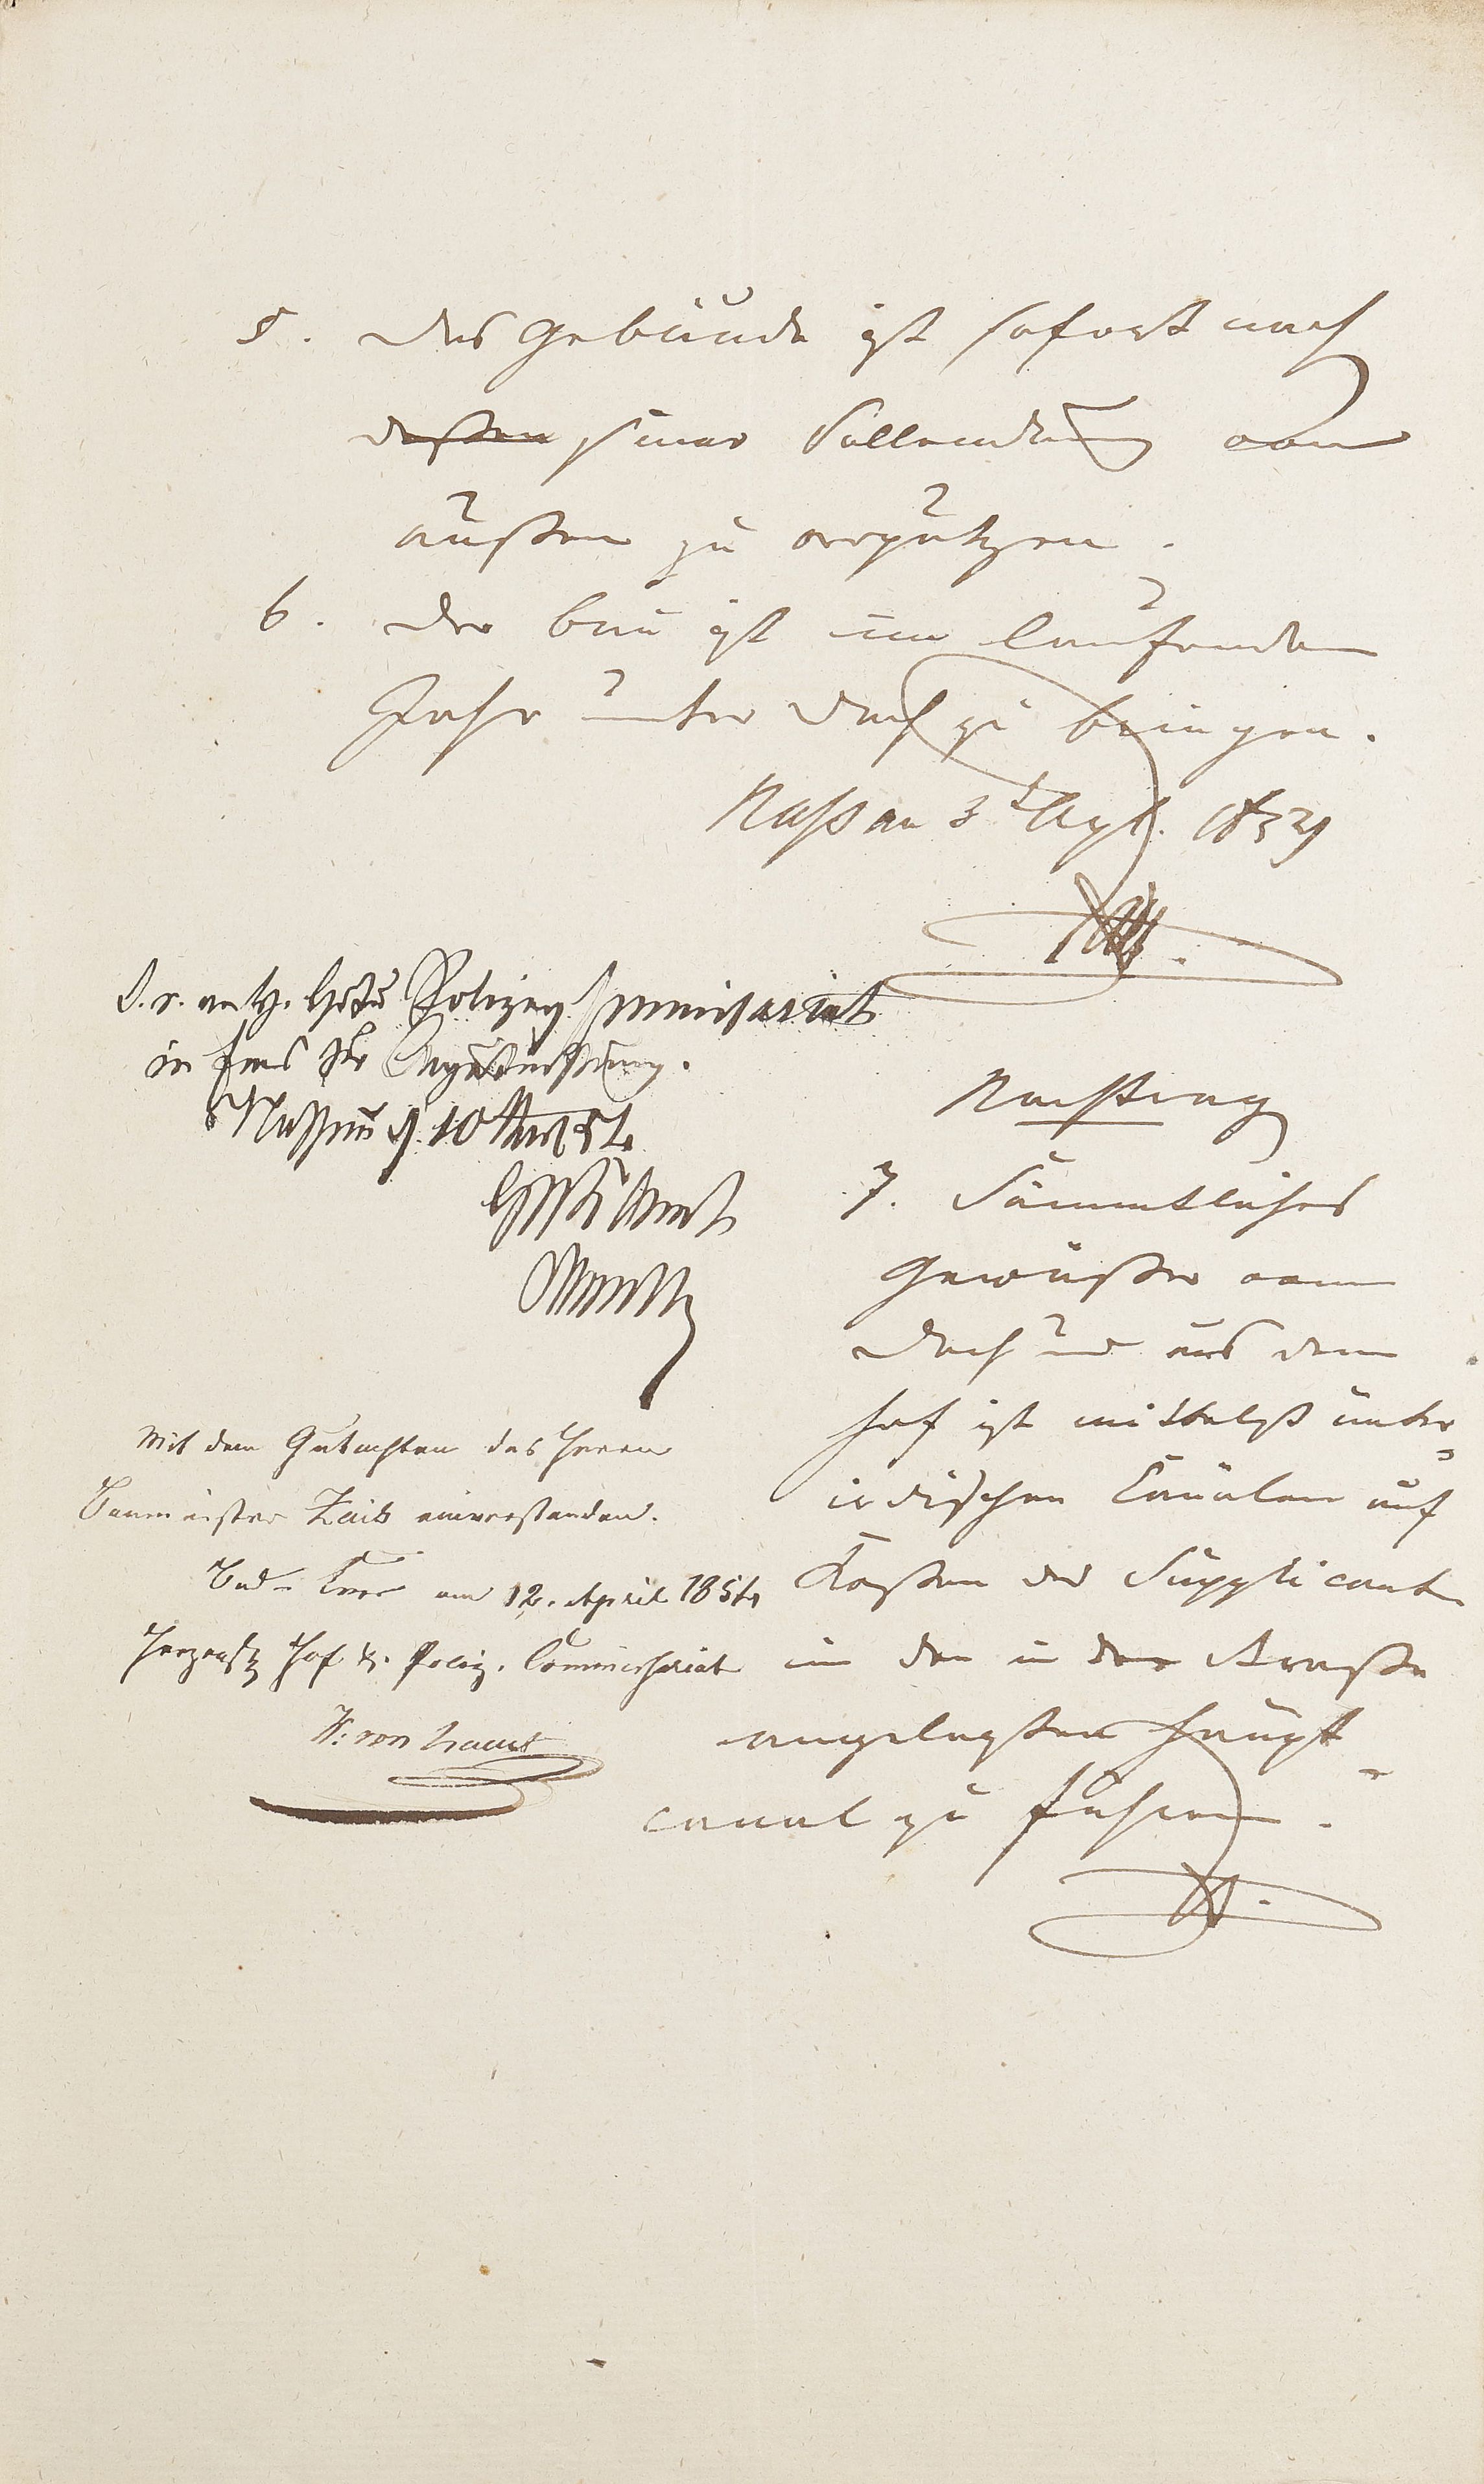 5. Das Gebäude ist sofort nach
deßen seiner Vollendung von
außen zu verputzen.
6. Der Bau ist im laufenden
Jahr unter Dach zu bringen.
Nassau 3t Apl. 1854
in Ems zur
Nassau d. 10 April 54.
Nachtrag
7. Sämmtliches
Gewäßer vom
Dach und aus dem
Hof ist mittelst unter-
irdischen Canälen auf
Kosten des Supplicant
in den in der Straße
angelegten Haupt-
canal zu führen.
Mit dem Gutachten des Herrn
Baumeister Zais einverstanden.
Bad-Ems am 12. April 1854
Herzogl. Poliz. Commissariat